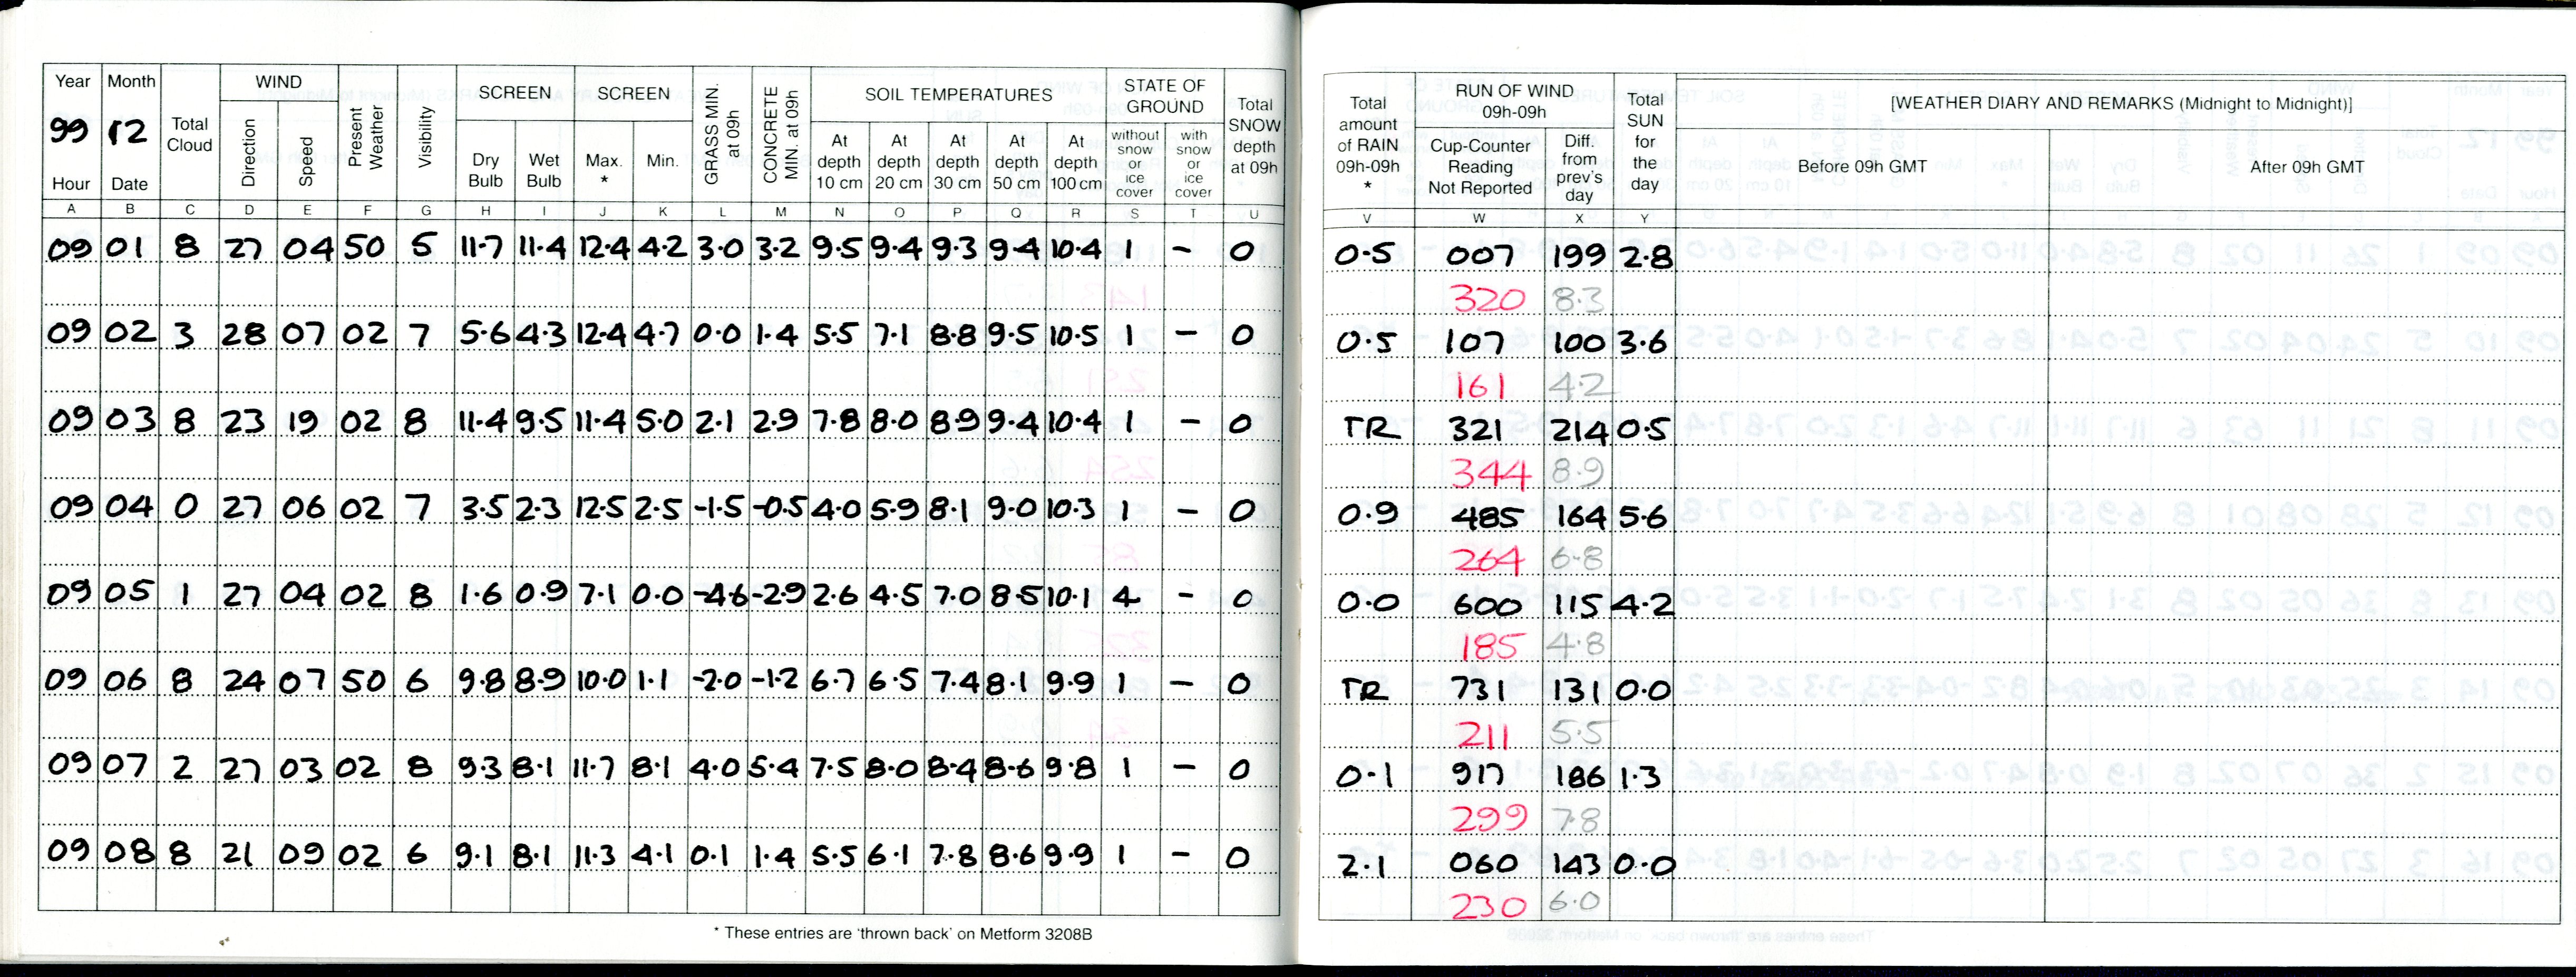 Year Month Total Cloud WIND Present Weather Visibility SCREEN SCREEN GRASS MIN. at 09h CONCRETE MIN. at 09h SOIL TEMPERATURES STATE OF GROUND Total SNOW depth at 09h
99 12 Direction Speed Dry Bulb Wet Bulb Max. * Min. At depth 10 cm At depth 20 cm At depth 30 cm At depth 50 cm At depth 100 cm without snow or ice cover with snow or ice cover
Hour Date
A B C D E F G H I J K L M N O P Q R S T U
09 01 8 27 04 50 5 11.7 11.4 12.4 4.2 3.0 3.2 9.5 9.4 9.3 9.4 10.4 1 – 0
09 02 3 28 07 02 7 5.6 4.3 12.4 4.7 0.0 1.4 5.5 7.1 8.8 9.5 10.5 1 – 0
09 03 8 23 19 02 8 11.4 9.5 11.4 5.0 2.1 2.9 7.8 8.0 8.9 9.4 10.4 1 – 0
09 04 0 27 06 02 7 3.5 2.3 12.5 2.5 -1.5 -0.5 4.0 5.9 8.1 9.0 10.3 1 – 0
09 05 1 27 04 02 8 1.6 0.9 7.1 0.0 -4.6 -2.9 2.6 4.5 7.0 8.5 10.1 4 – 0
09 06 8 24 07 50 6 9.8 8.9 10.0 1.1 -2.0 -1.2 6.7 6.5 7.4 8.1 9.9 1 – 0
09 07 2 27 03 02 8 9.3 8.1 11.7 8.1 4.0 5.4 7.5 8.0 8.4 8.6 9.8 1 – 0
09 08 8 21 09 02 6 9.1 8.1 11.3 4.1 0.1 1.4 5.5 6.1 7.8 8.6 9.9 1 – 0
* These entries are 'thrown back' on Metform 3208B
Total amount of RAIN 09h-09h * RUN OF WIND 09h-09h Total SUN for the day [WEATHER DIARY AND REMARKS (Midnight to Midnight)]
Cup-Counter Reading Not Reported Diff. from prev's day Before 09h GMT After 09h GMT
V W X Y
0.5 007 199 2.8
320 8.3
0.5 107 100 3.6
161 4.2
TR 321 214 0.5
344 8.9
0.9 485 164 5.6
264 6.8
0.0 600 115 4.2
185 4.8
TR 731 131 0.0
211 5.5
0.1 917 186 1.3
299 7.8
2.1 060 143 0.0
230 6.0